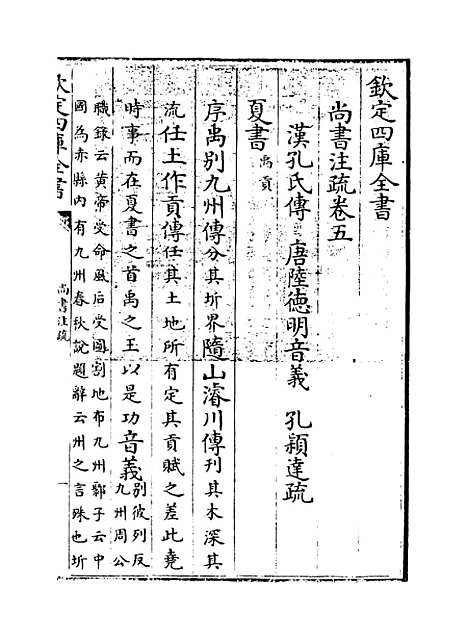 欽定四庫全書
尚書注疏卷五
漢孔氏傳　唐陸德明音義　孔穎達疏
夏書禹貢
序禹別九州傳分其圻界隨山濬川傳刊其木深其
流任土作貢傳任其土地所有定其貢賦之差此堯
時事而在夏書之首禹之王以是功音義別彼列反
九州周公
職錄云黄帝受命風后受圖割地布九州鄒子云中
國為赤縣內有九州春秋說題辭云州之言殊也圻
欽定四庫全書
尚書注疏
一